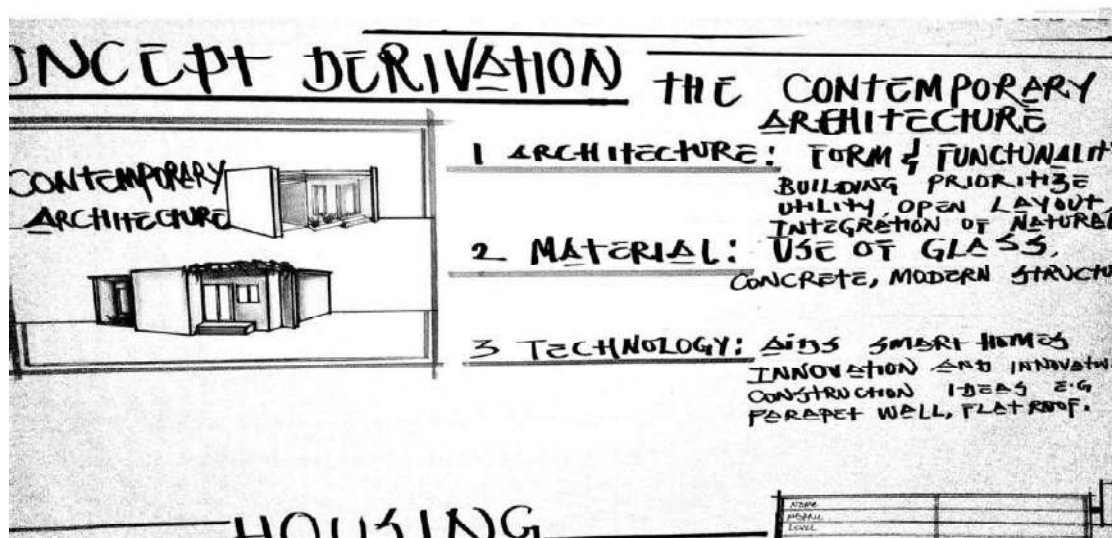 ONCEPT DERIVATION
THE CONTEMPORARY
ARCHITECTURE
CONTEMPORARY
ARCHITECTURE
1 ARCHITECTURE: FORM & FUNCTUNALIT
BUILDING PRIORITIZE
UTILITY, OPEN LAYOUT,
INTEGRATION OF NATURAL
2 MATERIAL: USE OF GLASS,
CONCRETE, MODERN STRUCTU
3 TECHNOLOGY: AIDS SMART HOMES
INNOVATION AND INNOVATIV
CONSTRUCTION IDEAS E.G
PARAPET WALL, FLAT ROOF.
HOUSING
NAME
LEVEL